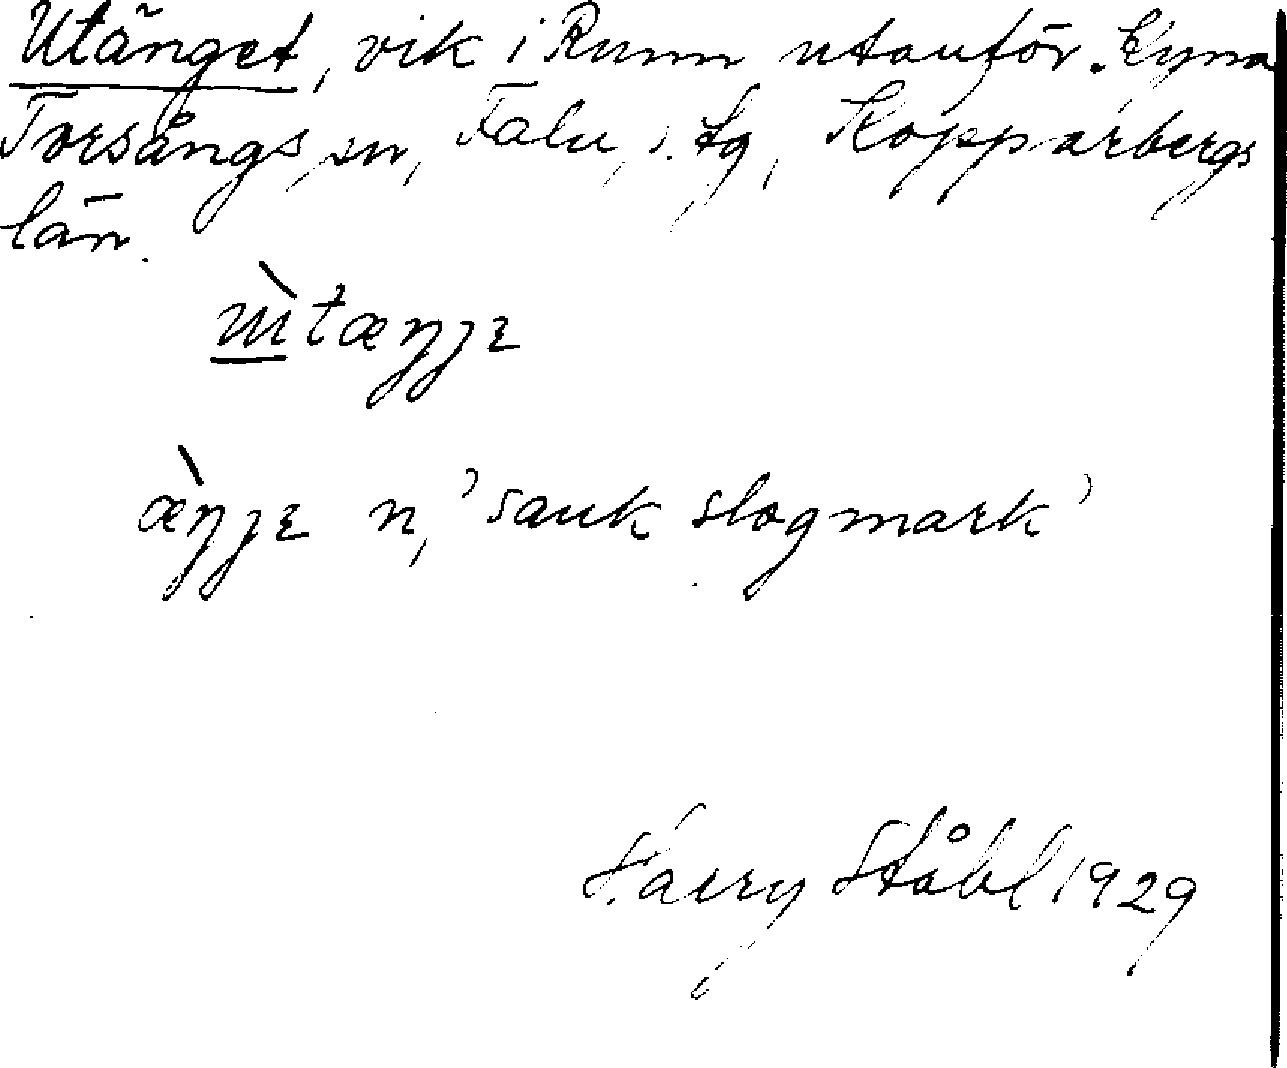 Utänget, vik i Runn utanför Kyna
Torsångs sn, Falu s. tg, Kopparbergs
län.
ɯ̀tæŋjɛ
æ̀ŋjɛ n, 'sank slogmark'
Harry Ståhl 1929